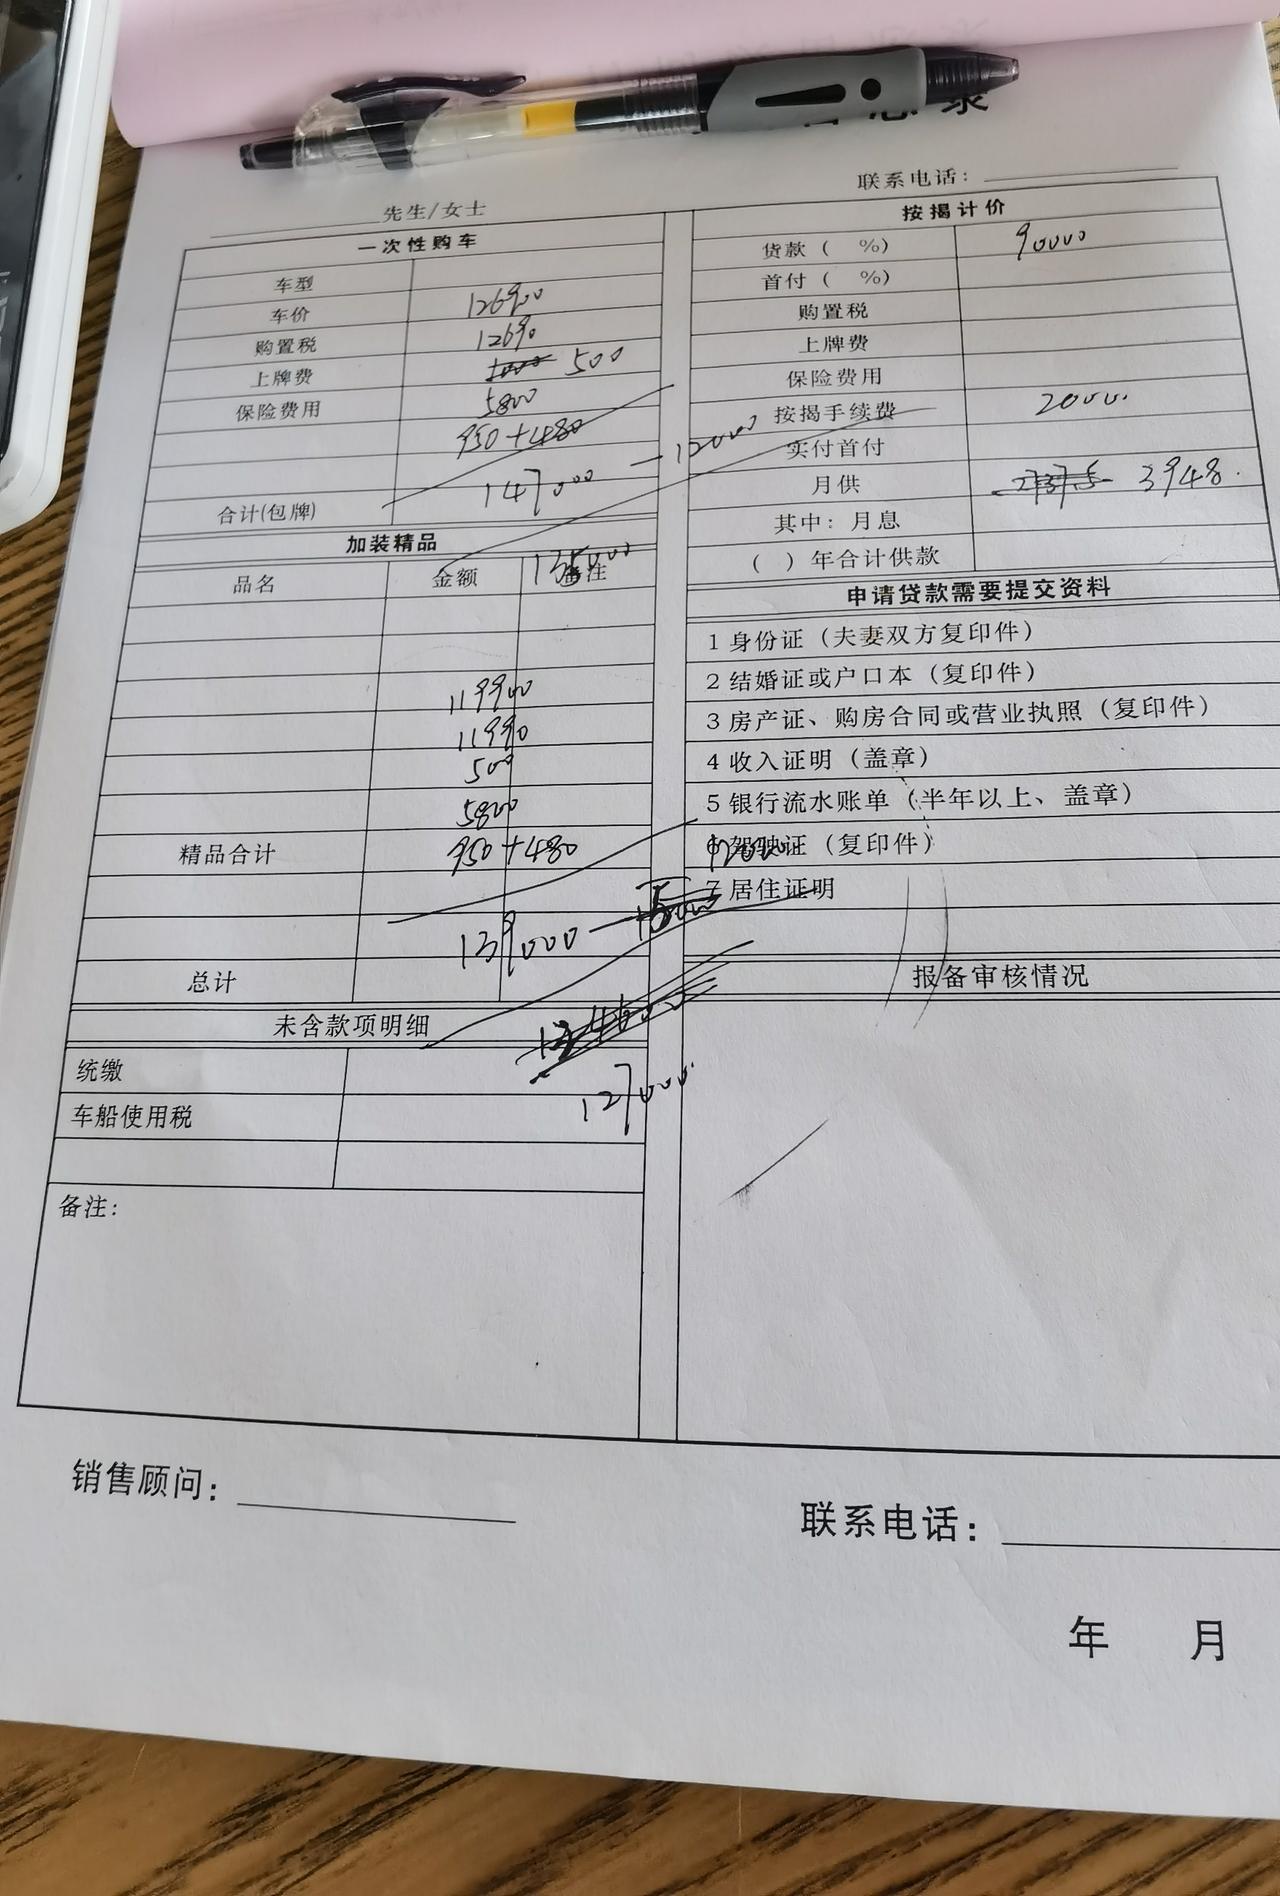 联系电话：
先生/女士
一次性购车
车型
车价 126900
购置税 12690
上牌费 500
保险费用 5800
950+480
合计(包牌) 147000 — 12000
135000
加装精品
品名 金额 备注
119900
11990
500
5800
精品合计 950+480
139000 — 12000
总计
未含款项明细
127000
统缴
车船使用税
备注：
按揭计价
货款（ %） 90000
首付（ %）
购置税
上牌费
保险费用
按揭手续费 2000
实付首付
月供 3948
其中：月息
（ ）年合计供款
申请贷款需要提交资料
1 身份证（夫妻双方复印件）
2 结婚证或户口本（复印件）
3 房产证、购房合同或营业执照（复印件）
4 收入证明（盖章）
5 银行流水账单（半年以上、盖章）
6 驾驶证（复印件）
7 居住证明
报备审核情况
销售顾问：
联系电话：
年 月